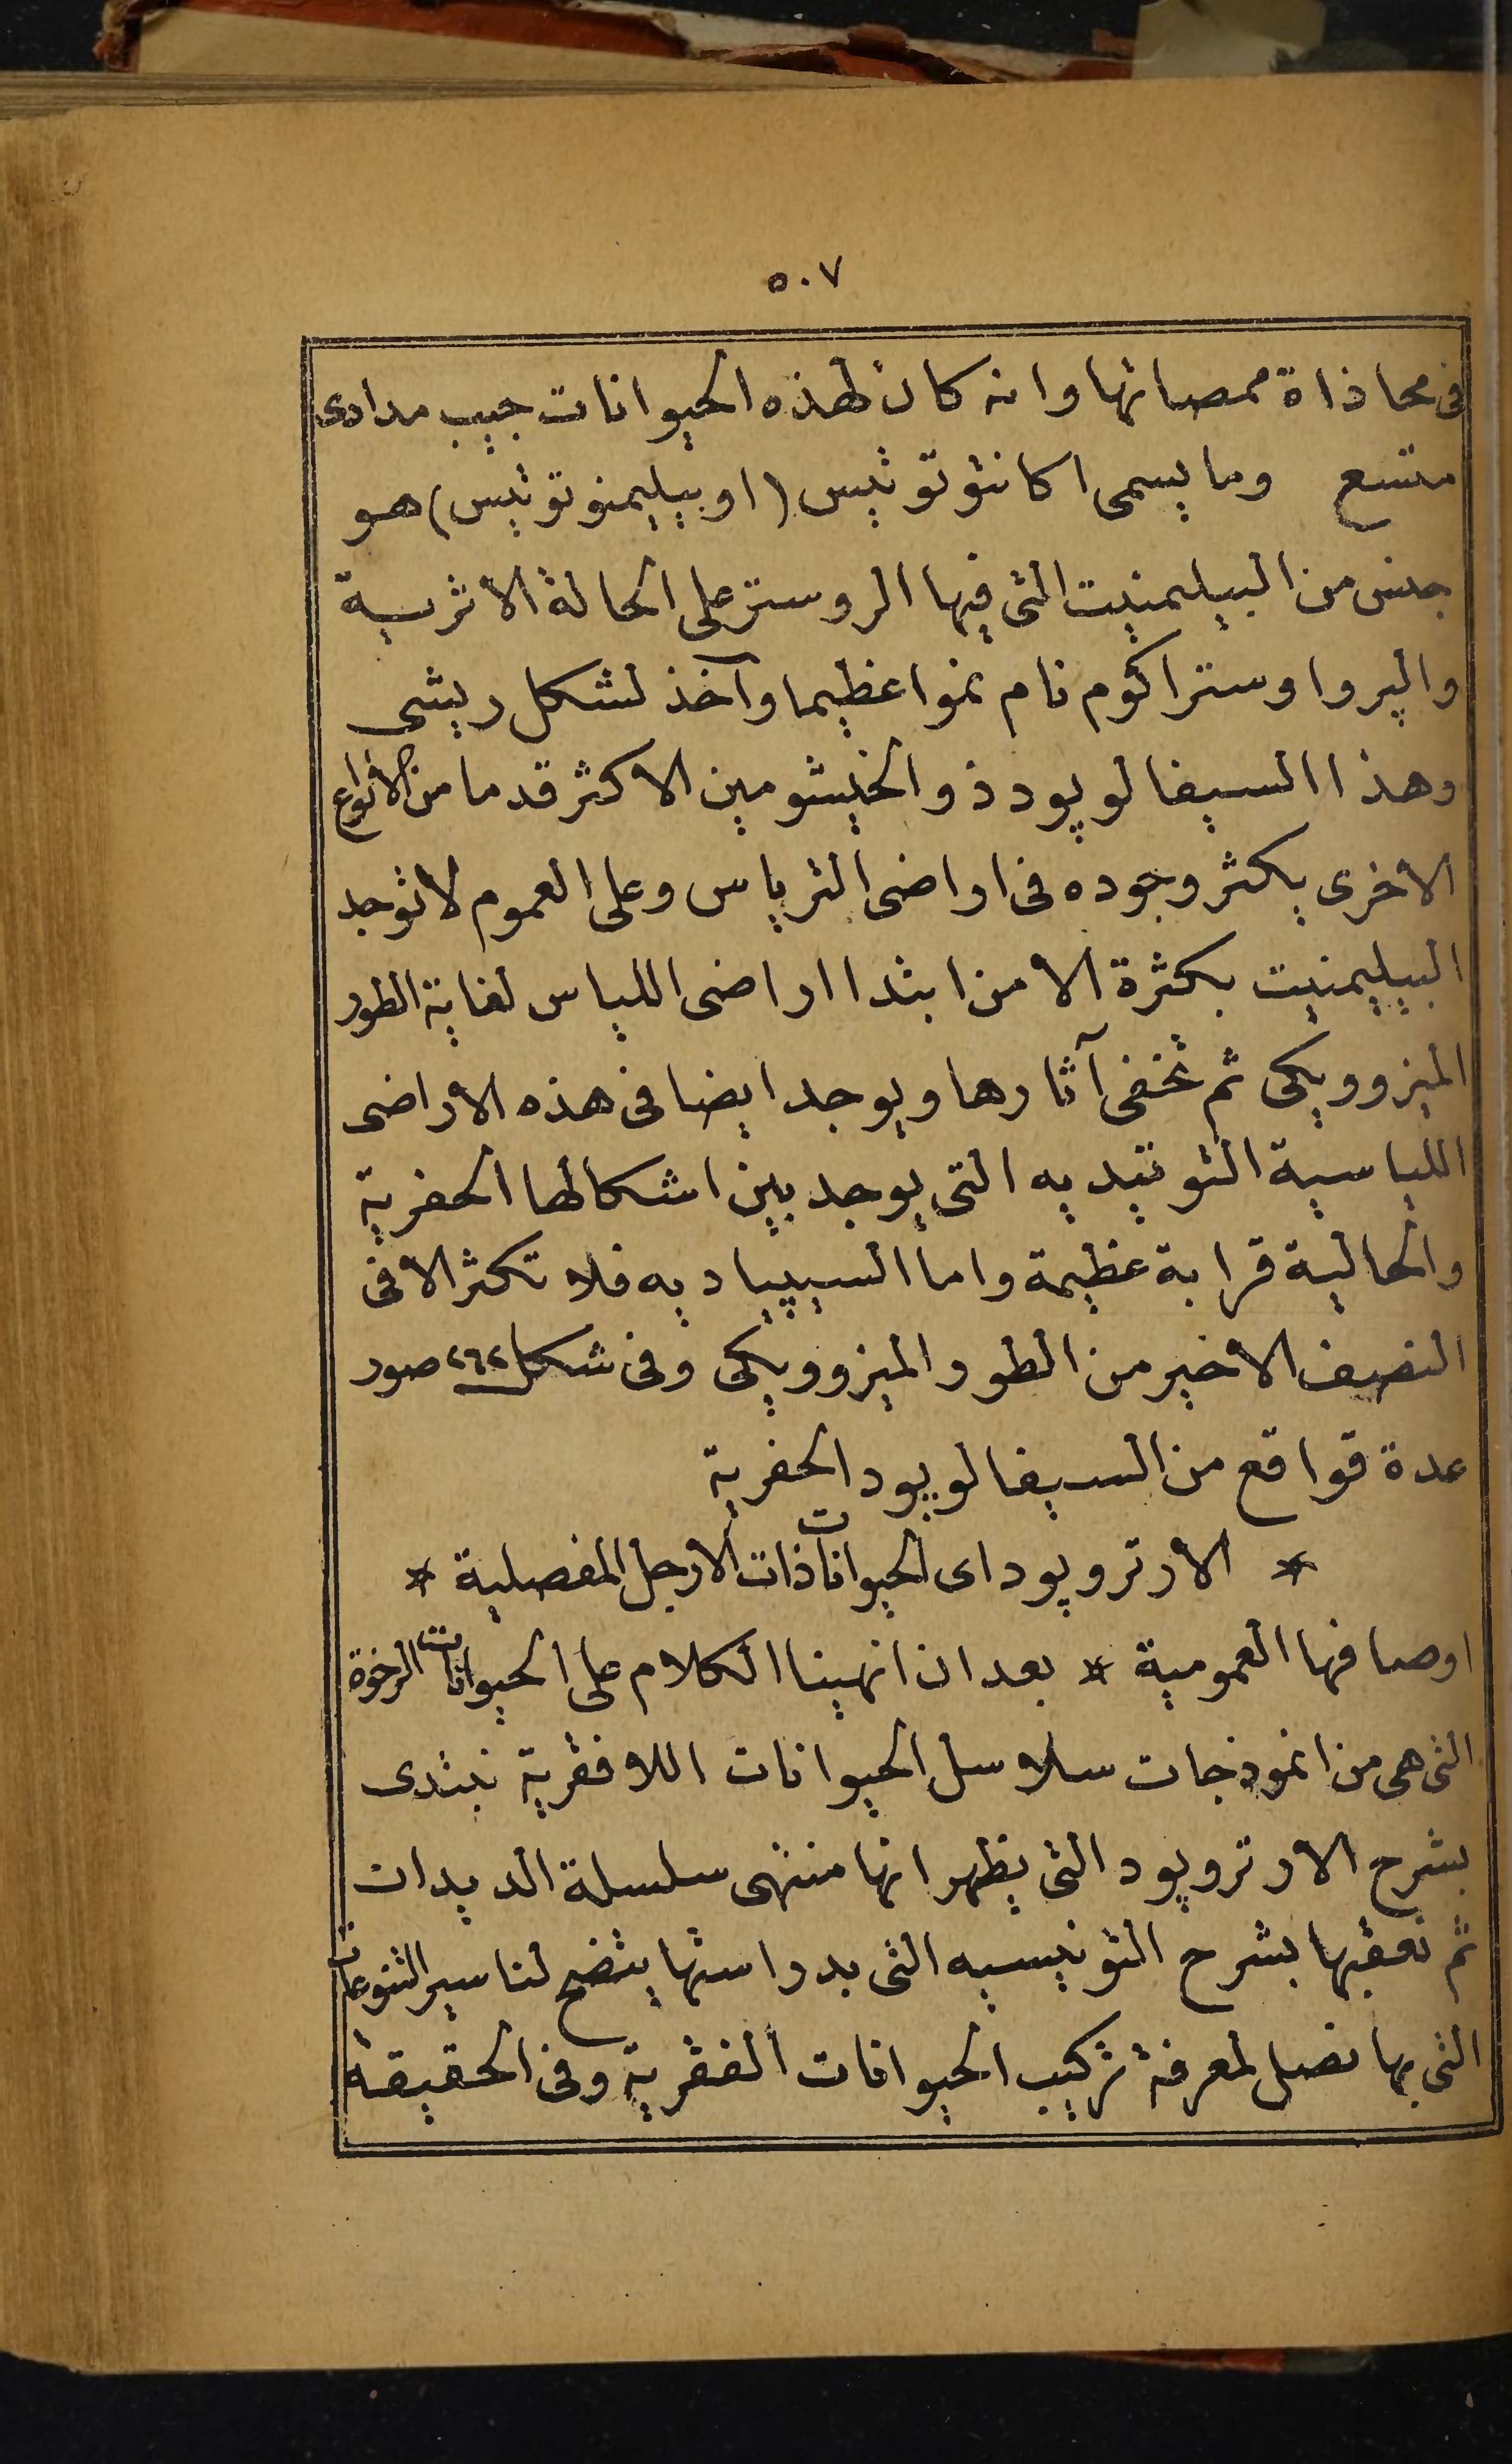 ٥٠٧
فى محاذاة ممصاتها وانه كان لهذه الحيوانات جيب مدادى
متسع وما يسمى اكانثوتوثيس (او بيليمنوتوثيس) هو
جنس من البيليمنيت التى فيها الروستر على الحالة الاثرية
والپرواوستراكوم نام نموا عظيما وآخذ لشكل ريشى
وهذا السيفالوپود ذو الخيشومين الاكثر قدما من الانواع
الاخرى يكثر وجوده فى اراضى الترياس وعلى العموم لا توجد
البيليمنيت بكثرة الا من ابتدا اراضى اللياس لغاية الطور
الميزوويكى ثم تخفى آثارها ويوجد ايضا فى هذه الاراضى
اللياسية التوتيديه التى يوجد بين اشكالها الحفرية
والحالية قرابة عظيمة واما السيپياديه فلا تكثر الا فى
النصف الاخير من الطور الميزوويكى وفى شكل ٢٦٢ صور
عدة قواقع من السيفالوپود الحفرية
* الارتروپود اى الحيوانات ذات الارجل المفصلية *
اوصافها العمومية * بعد ان انهينا الكلام على الحيوانات الرخوة
التى هى من انموذجات سلاسل الحيوانات اللافقرية نبتدى
بشرح الارتروپود التى يظهر انها منتهى سلسلة الديدات
ثم نعقبها بشرح التونيسيه التى بدراستها يتضح لنا سير التنوعات
التى بها نصل لمعرفة تركيب الحيوانات الفقرية وفى الحقيقة